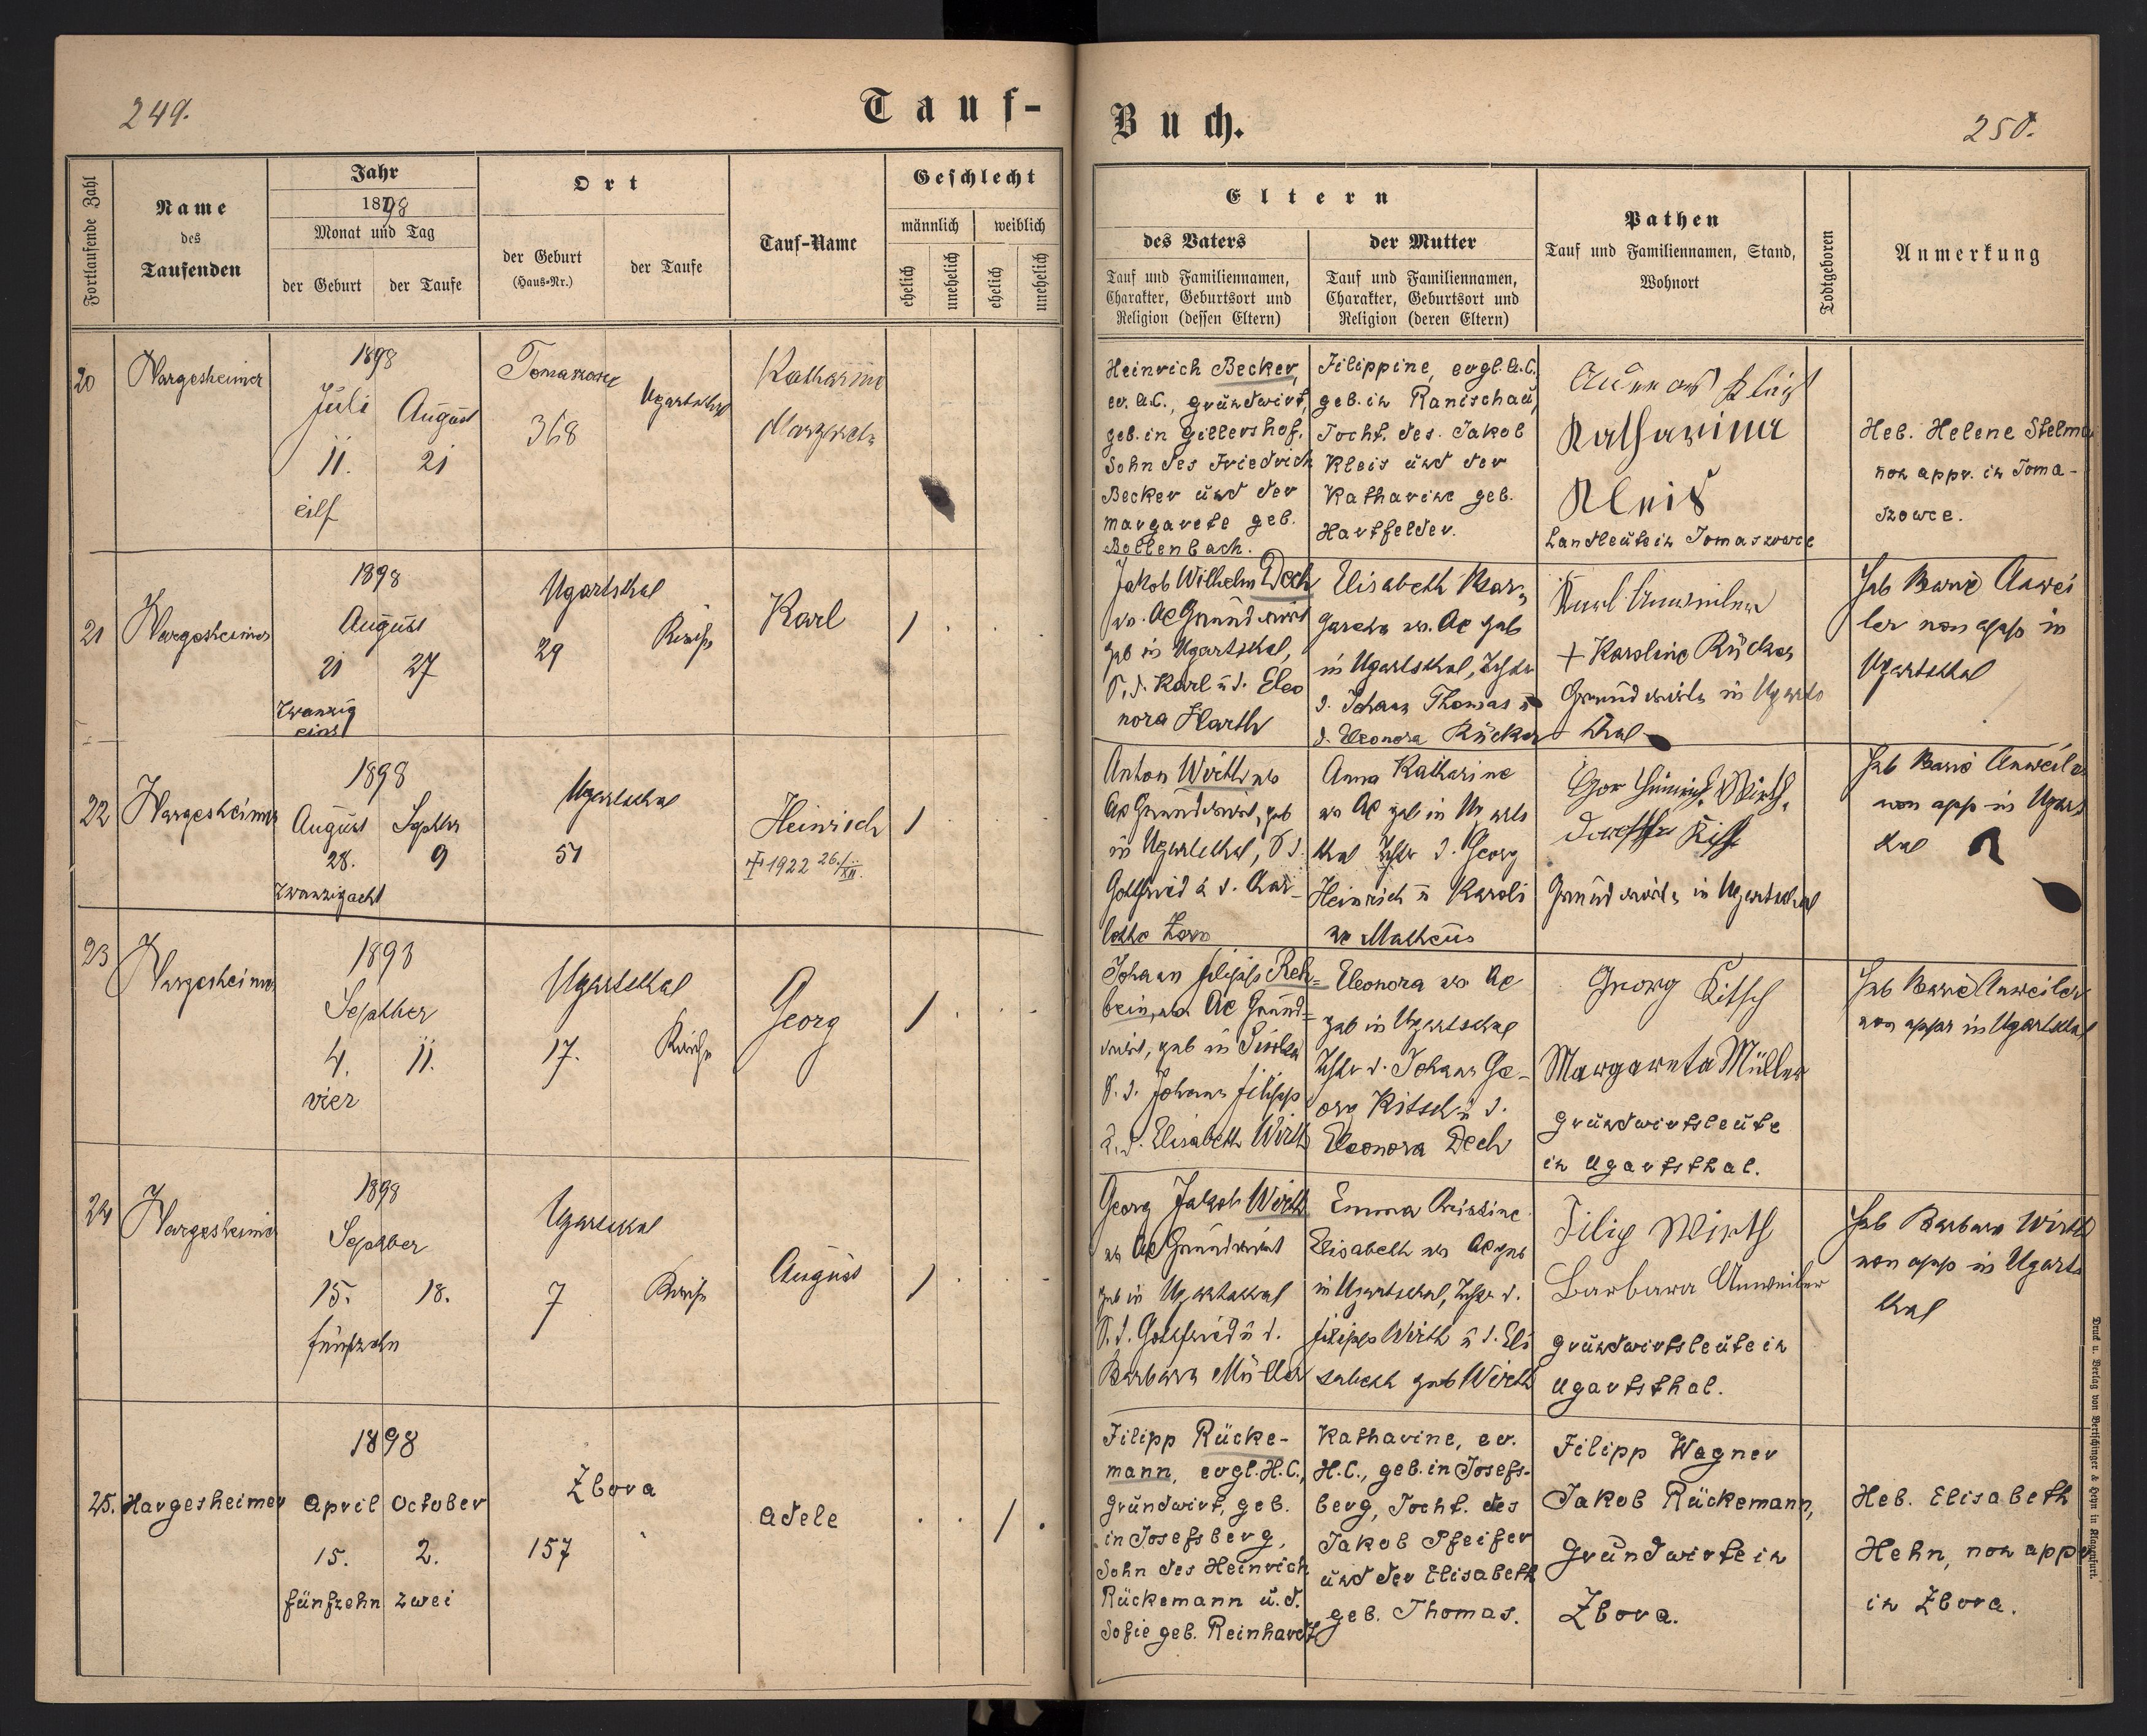 249.
Tauf-
Fortlaufende Zahl
Name
des
Taufenden
Jahr
1898
Monat und Tag
der Geburt
der Taufe
Ort
der Geburt
(Haus-Nr.)
der Taufe
Tauf-Name
Geschlecht
männlich
weiblich
ehelich
unehelich
ehelich
unehelich
20
Hargesheimer
1898
Juli
August
11.
21
eilf
368
Ugartsthal
Katharina
21
Hargesheimer
1898
August
21
27
Zwanzig
eins
Ugartsthal
29
Kirche
Karl
22
Hargesheimer
1898
August
28.
9
Zwanzigacht
Ugartsthal
51
Heinrich
1922 26./XII.
23
Hargesheimer
1898
September
4.
11.
vier
Ugartsthal
17.
Kirche
Georg
24
Hargesheimer
1898
September
15.
18.
fünfzehn
Ugartsthal
7
Kirche
August
25.
Hargesheimer
1898
April
October
15.
2.
fünfzehn
zwei
Zbora
157
Adele
Buch.
250.
Eltern
des Vaters
der Mutter
Tauf und Familiennamen,
Charakter, Geburtsort und
Religion (dessen Eltern)
Tauf und Familiennamen,
Charakter, Geburtsort und
Religion (deren Eltern)
Pathen
Tauf und Familiennamen, Stand,
Wohnort
Todtgeboren
Anmerkung
Heinrich Becker,
ev. A.C., Grundwirt,
geb. in Gillershof,
Sohn des Friedrich
Becker und der
Margarete geb.
Bollenbach.
Filippine, evgl. A.C.
geb. in Ranischau,
Tocht. des Jakob
Kleis und der
Katharine geb.
Hartfelder.
Katharina
Kleis
Landleute in Tomaszowce
Heb. Helene Stelma
non appr. in Toma-
szowce.
Jakob Wilhelm Dech
ev. AC Grundwirt
geb in Ugartsthal,
S. d. Karl u d. Eleo
nora Harth
Elisabeth Mar-
garetha ev. AC geb
in Ugartsthal, Tochter
d. Johann Thomas u
d. Eleonora Rücker
Karl Anweiler
+ Karoline Rücker
Grundwirte in Ugarts
thal
Heb Anwei
ler non appr in
Ugartsthal
Anton Wirth ev
AC Grundwirt, geb
in Ugartsthal, S d.
Gottfried u d. Char-
lotte Zorn
Anna Katharine
ev AC geb in Ugarts
thal Tochter d. Georg
Heinrich u Karoli
ne Matheus
Wirth
Grundwirte in Ugartsthal
Heb Anweiler
non appr in Ugarts
thal
Johann Filipp Reh=
bein, ev. AC Grund=
wirt, geb in
S. d. Johann Filipp
u. d. Elisabeth Wirth
Eleonora ev AC
geb in Ugartsthal
Tochter d. Johann Ge-
org Kitsch u d.
Eleonora Dech
Georg Kitsch
Margareta Müller
Grundwirtsleute
in Ugartsthal.
Heb Anweiler
non appr in Ugartsthal
Georg Jakob Wirth
ev AC Grundwirt
geb in Ugartsthal
S. d. Gottfried u d.
Barbara Müller
Emma Christine
Elisabeth ev AC geb
in Ugartsthal, Tochter d.
Filipp Wirth u d. Eli
sabeth geb Wirth
Filip Wirth
Barbara Anweiler
Grundwirtsleute in
Ugartsthal.
Heb Barbara Wirth
non appr in Ugarts
thal
Filipp Rücke-
mann, evgl. H.C.,
Grundwirt, geb.
in Josefsberg,
Sohn des Heinrich
Rückemann u. d.
Sofie geb. Reinhardt
Katharine, ev.
H.C., geb. in Josefs-
berg, Tocht. des
Jakob Pfeifer
und der Elisabeth
geb. Thomas.
Filipp Wagner
Jakob Rückemann,
Grundwirte in
Zbora.
Heb. Elisabeth
Hehn, non appr
in Zbora.
Druck u. Verlag von Bertschinger & Heyn in Klagenfurt.